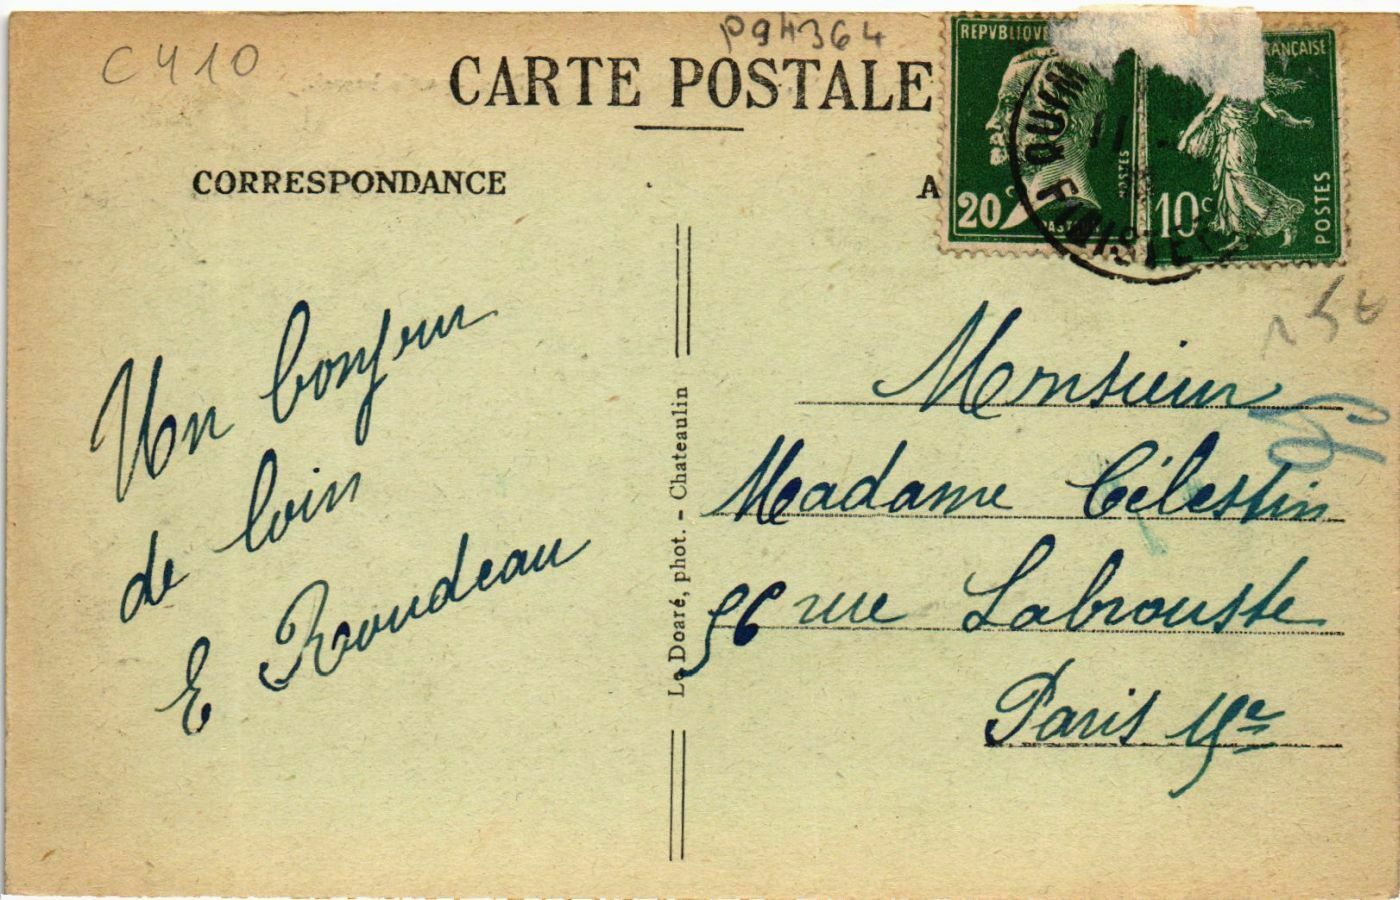 C410
P94364
CARTE POSTALE
CORRESPONDANCE
A
REPVBLIQVE
FRANÇAISE
20c
POSTES
10c
POSTES
QUIM
11
FINISTE
Un bonjour
de loin
E Roudeau
Le Doaré, phot. - Chateaulin
Monsieur
Madame Célestin
56 rue Labrouste
Paris 15e